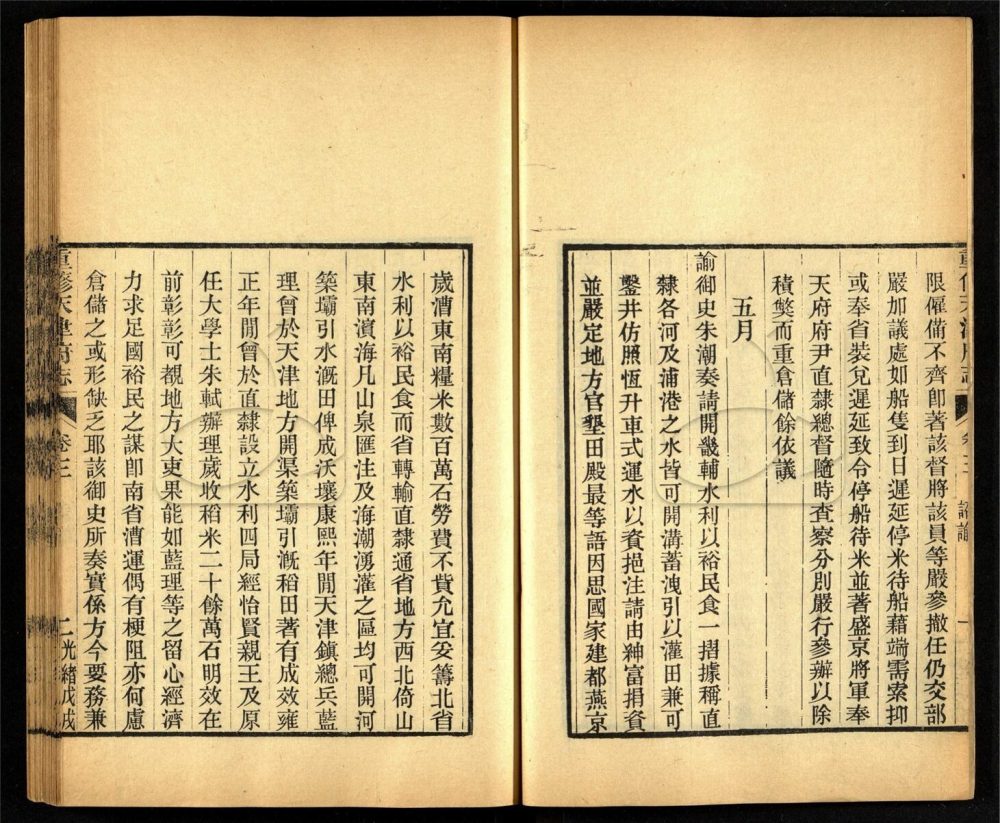 限僱備不齊卽著該督將該員等嚴參撤任仍交部
嚴加議處如船隻到日遲延停米待船藉端需索抑
或奉省裝兌遲延致令停船待米並著盛京將軍奉
天府府尹直隸總督隨時查察分別嚴行參辦以除
積獘而重倉儲餘依議
五月
諭御史朱潮奏請開畿輔水利以裕民食一摺據稱直
隸各河及浦港之水皆可開溝蓄洩引以灌田兼可
鑿井仿照恆升車式運水以資挹注請由紳富捐貲
並嚴定地方官墾田殿最等語因思國家建都燕京
歲漕東南糧米數百萬石勞費不貲允宜妥籌北省
水利以裕民食而省轉輸直隸通省地方西北倚山
東南濱海凡山泉匯注及海潮湧灌之區均可開河
築壩引水漑田俾成沃壤康熙年閒天津鎮總兵藍
理曾於天津地方開渠築壩引漑稻田著有成效雍
正年閒曾於直隸設立水利四局經怡賢親王及原
任大學士朱軾辦理歲收稻米二十餘萬石明效在
前彰彰可覩地方大吏果能如藍理等之留心經濟
力求足國裕民之謀卽南省漕運偶有梗阻亦何慮
倉儲之或形缺乏耶該御史所奏實係方今要務兼
重修天津府志 卷三 二 光緒戊戌